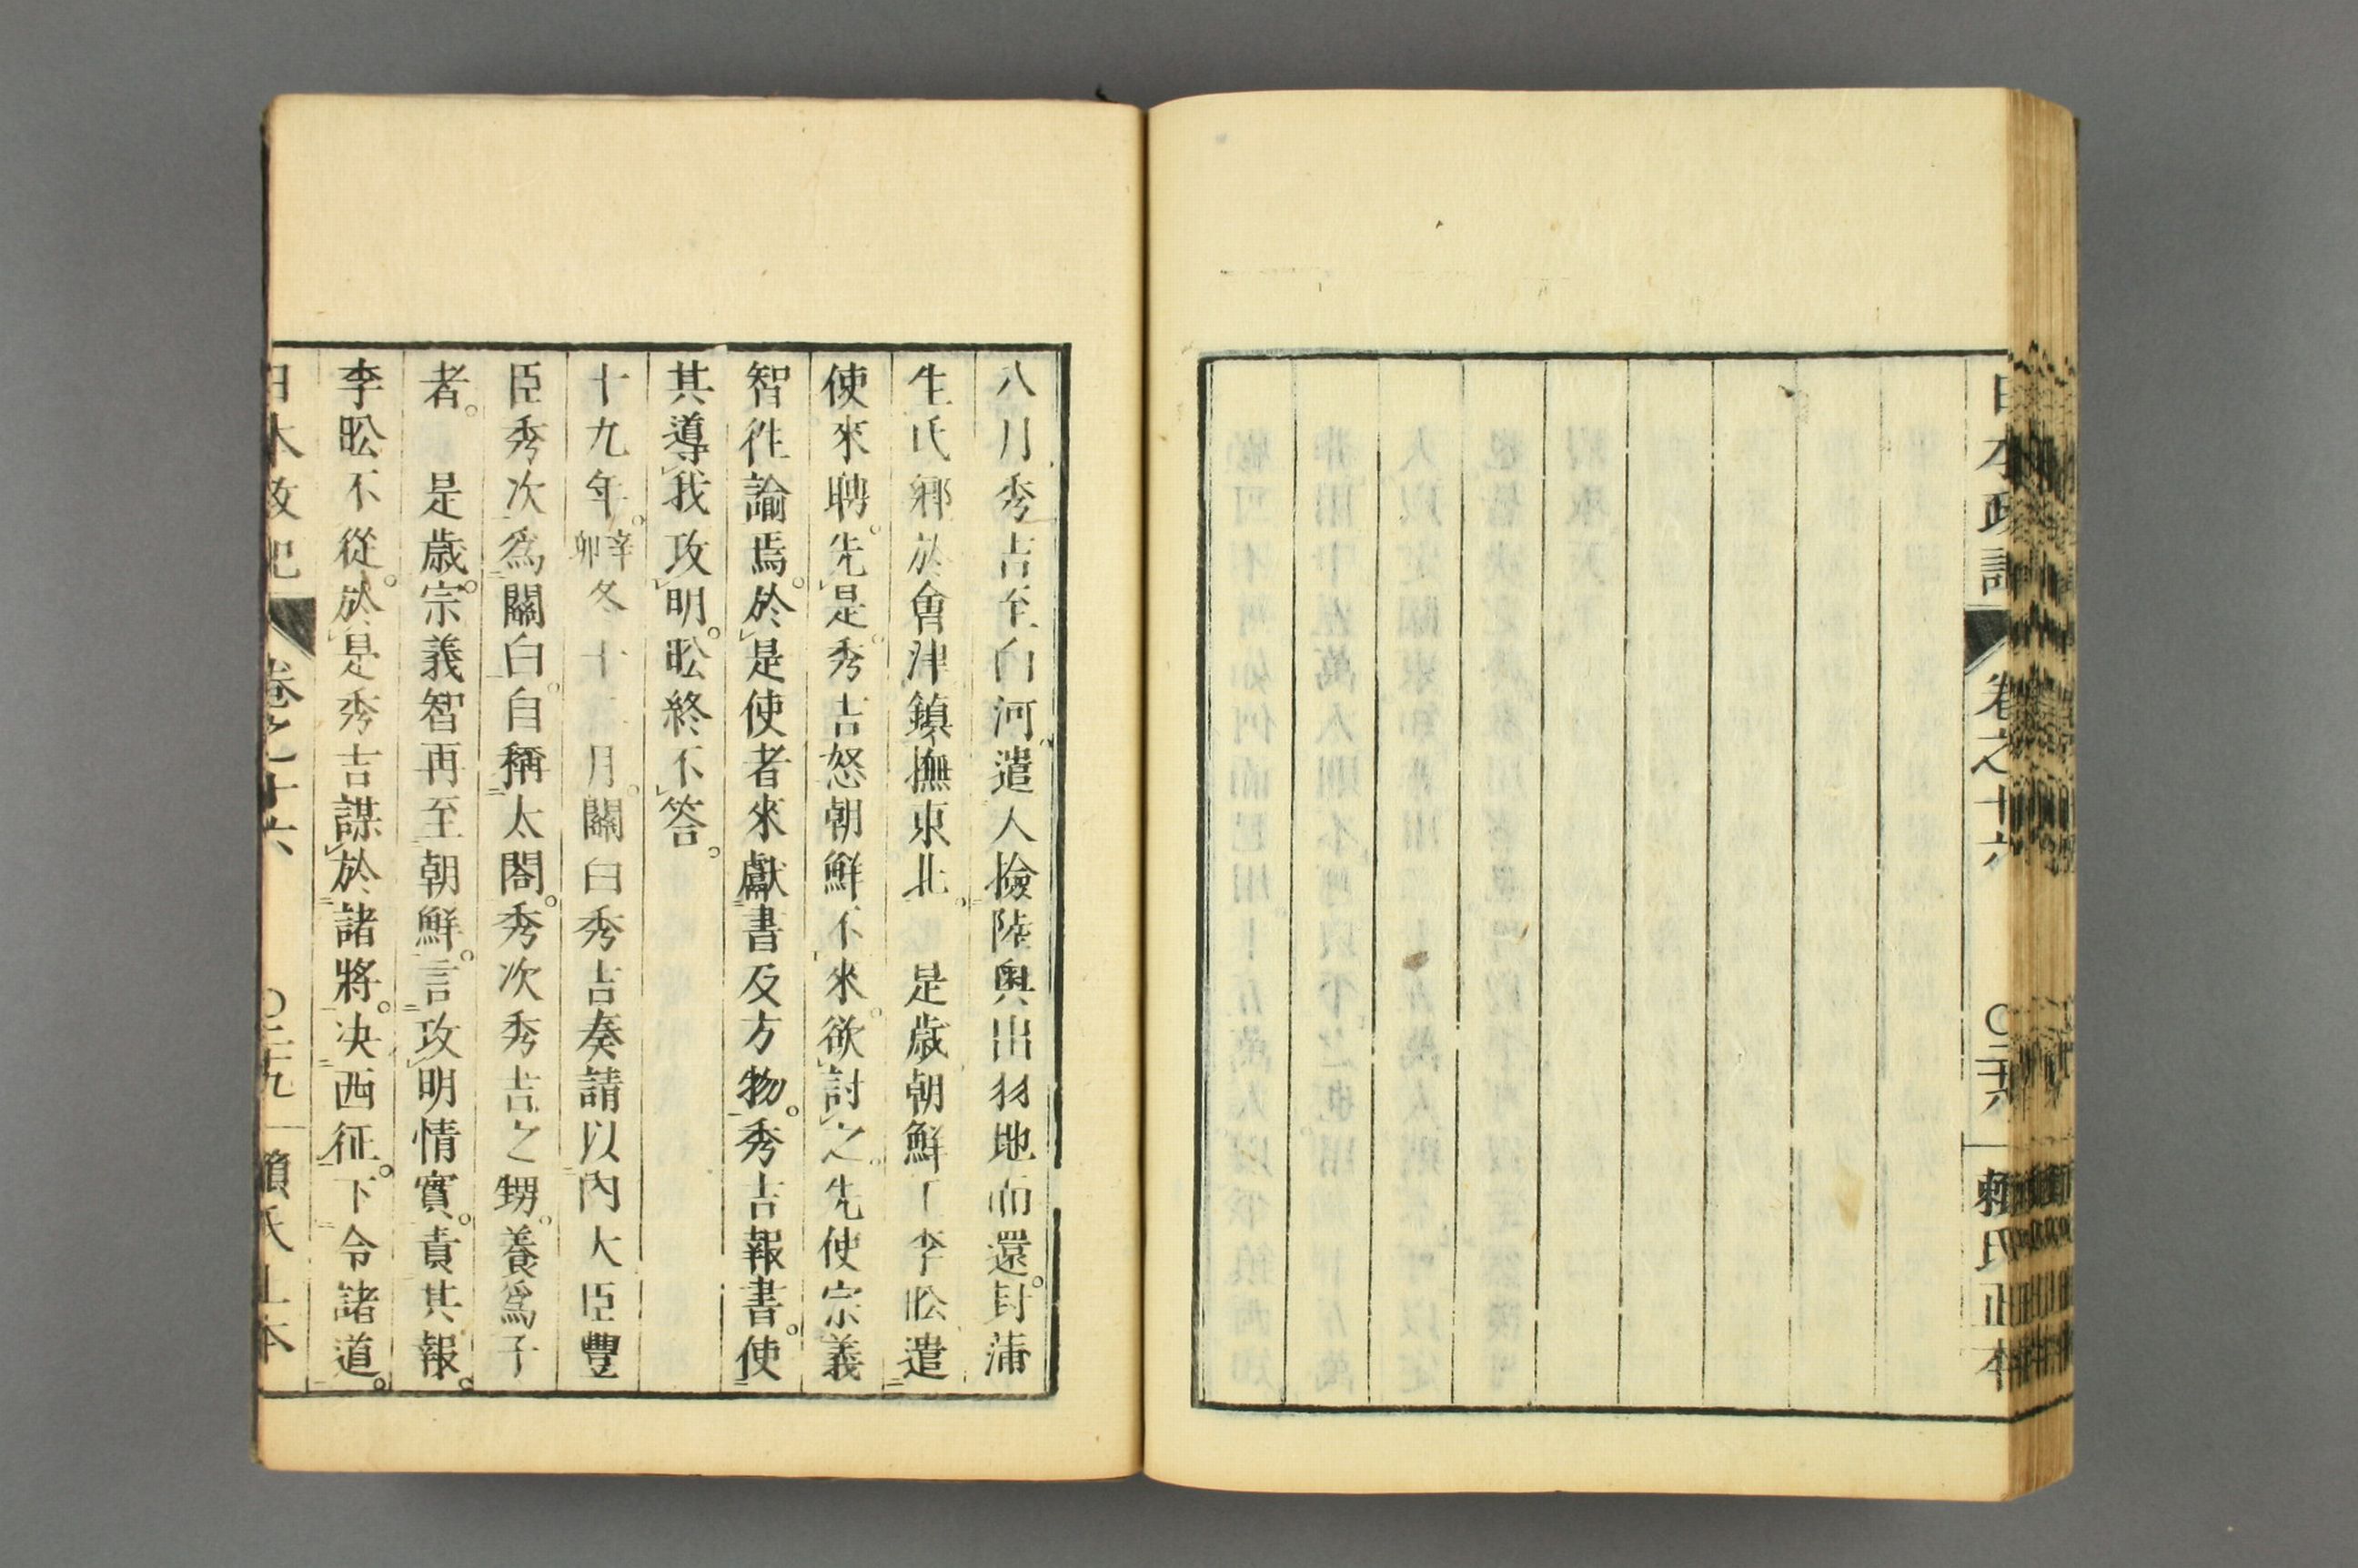 日本政記 卷之十六 〇二十八 頼氏正本
八月秀吉至白河遣人檢陸奧出羽地而還。封蒲
生氏鄉於會津鎮撫東北。 是歲朝鮮王李昖遣
使來聘。先是。秀吉怒朝鮮不來。欲討之。先使宗義
智徃諭焉。於是使者來獻書及方物。秀吉報書。使
其導我攻明。昖終不答。
十九年。辛卯冬十二月。關白秀吉奏請以內大臣豐
臣秀次爲關白。自稱太閤。秀次秀吉之甥。養爲子
者。 是歲。宗義智再至朝鮮。言攻明情實。責其報。
李昖不從。於是秀吉謀於諸將。决西征。下令諸道。
日本政記 卷之十六 〇二十九 頼氏正本